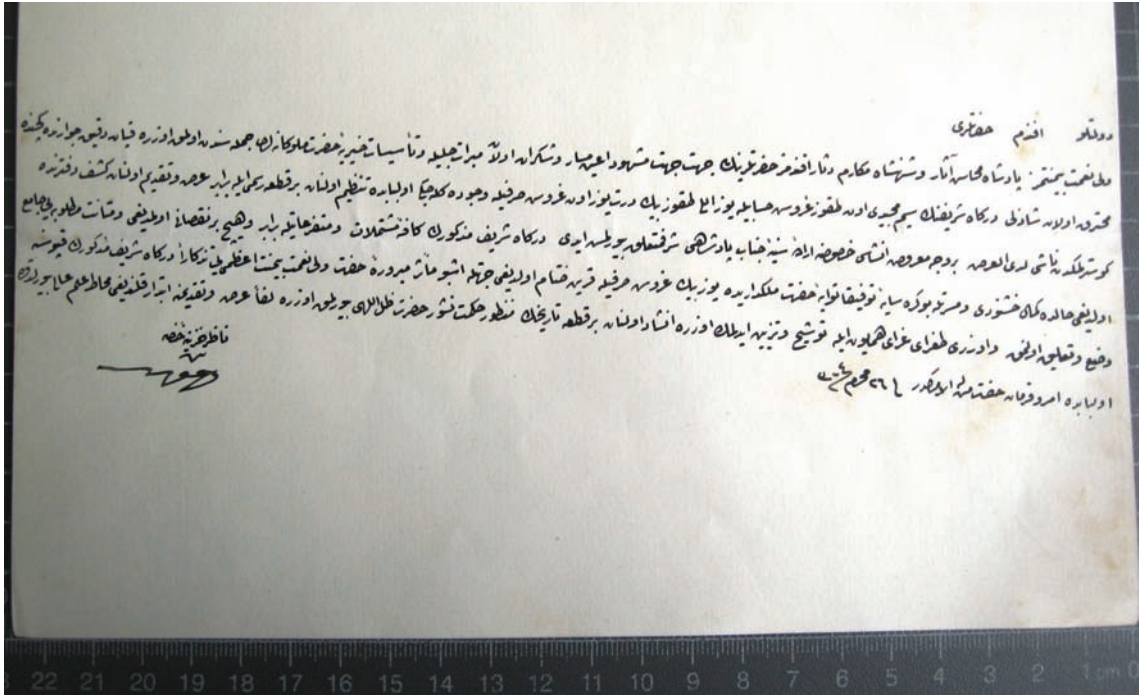 دولتلو افندم حضرتلری
ولی نعمت بیمنتمز پادشاه محاسن آثار و شهنشاه مکارم دثار افندمز حضرتلرینک جهت جهت مشهود اعین مبار و شکران اولان مبرات جلیله و تأسیسات خیریهٔ حضرت ملوکانه‌لری جمله‌سندن اولمق اوزره قپان دقیق جوارنده کچنده
محترق اولان شاذلی درکاه شریفنک سیم مجیدی اون طقوز غروش حسابیله یوز اللی طقوز بیک درتیوز اون غروش صرفیله وجوده کله‌جکی اولبابده تنظیم اولنان بر قطعه رسمی ایله برابر عرض و تقدیم اولنان کشف دفترنده
کوسترلمکدن ناشی لدی العرض بر وجه معروض انشاسی خصوصنه ارادهٔ سنیهٔ جناب پادشاهی شرفتعلق بیورلمش ایدی درکاه شریف مذکورک کافهٔ مشتملات و متفرعاتیله برابر و هیچ بر نقصانی اولمدیغی و متانت مطلوبه‌یی جامع
اولدیغی حالده کمال خشنودی و مسرتله بوکره سایهٔ توفیقاتوایهٔ حضرت ملکداریده یوز بیک غروش صرفیله قرین ختام اولدیغی جهتله اشبو مآثر مبرورهٔ حضرت ولی نعمت بیمنت اعظمی‌یی تذکاراً درکاه شریف مذکورک قپوسنه
وضع و تعلیق اولنمق و اوزری طغرای غرای همایون ایله توشیح و تزیین ایدلمک اوزره انشاد اولنان بر قطعه تاریخک منظور حکمت نشور حضرت ظل اللهی بیورلمق اوزره لفاً عرض و تقدیمنه ابتدار قلندیغی محاط علم عالی بیورلدقده
اولبابده امر و فرمان حضرت من له الامرکدر فی ٢٦ محرم سنه
ناظر خزینهٔ خاصه